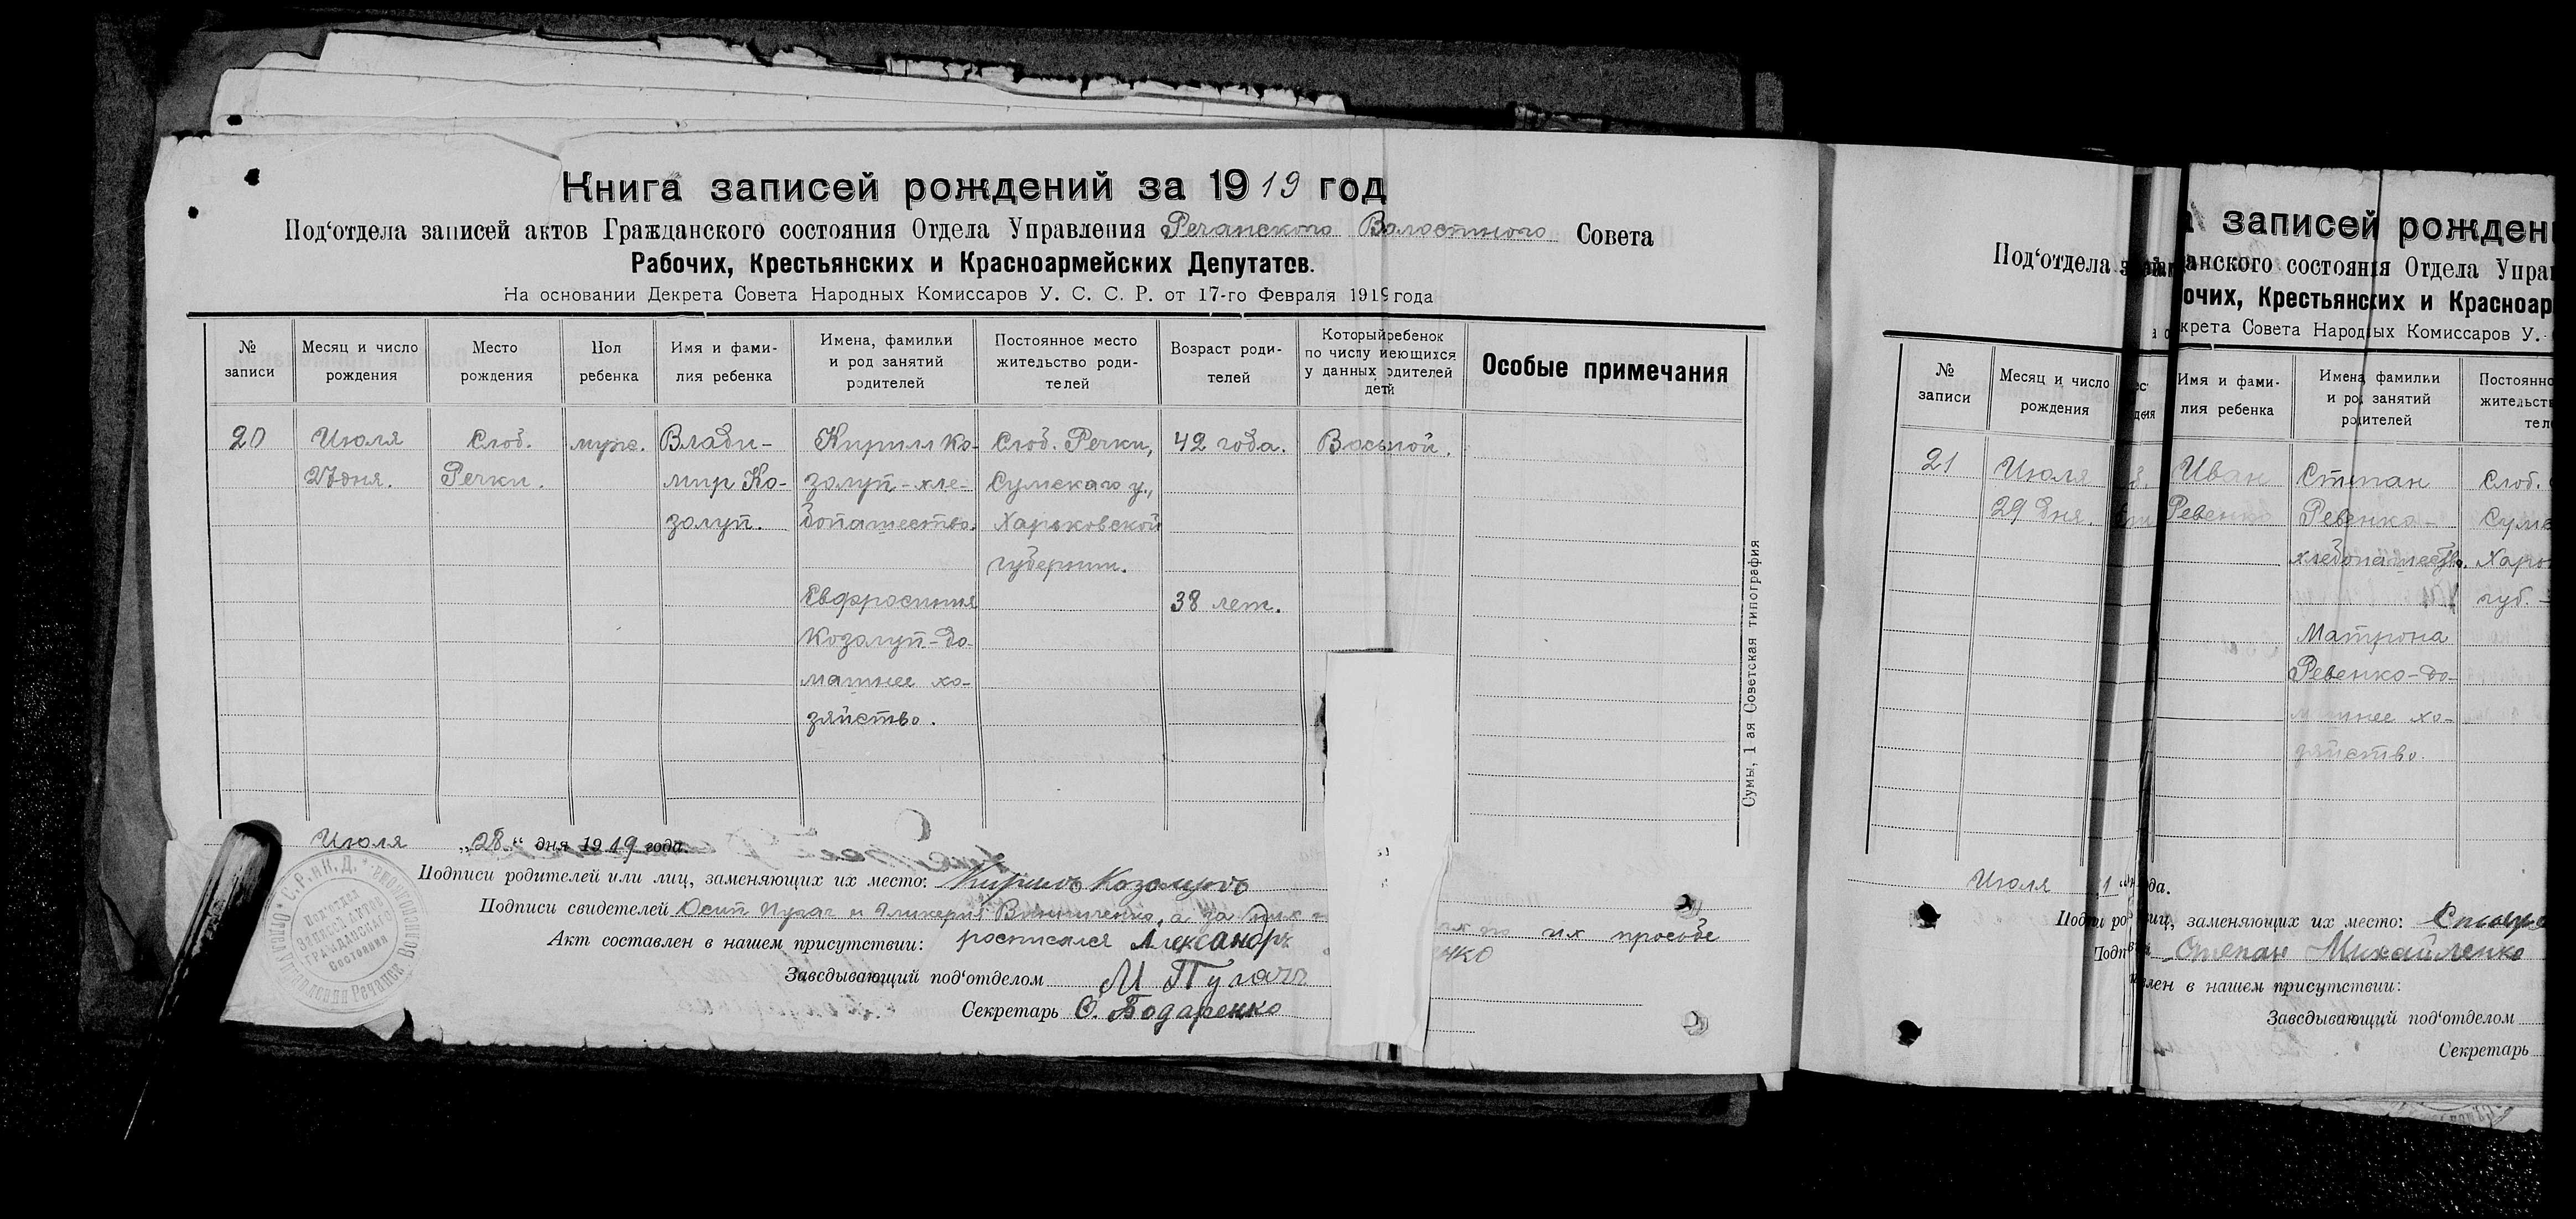 Книга записей рождений за 1919 год
Под‘отдела записей актов Гражданского состояния Отдела Управления Речанского Волостного Совета
Рабочих, Крестьянских и Красноармейских Депутатов.
На основании Декрета Совета Народных Комиссаров У. С. С. Р. от 17-го Февраля 1919 года
№ записи
Месяц и число рождения
Место рождения
Пол ребенка
Имя и фами-
лия ребенка
Имена, фамилии
и род занятий
родителей
Постоянное место
жительство роди-
телей
Возраст роди-
телей
Который ребенок
по числу имеющихся
у данных родителей
детй
Особые примечания
20
Июля
27 дня.
Слоб.
Речки.
муж.
Влади-
мир Ко-
золуп.
Кирилл Ко-
золуп-хле-
бопашество.
Евфросиния
Козолуп-до-
машнее хо-
зяйство.
Слоб. Речки,
Сумскаго у.,
Харьковской
губернии.
42 года.
38 лет.
Восьмой.
Сумы, 1-ая Советская типография
Июля „28“ дня 1919 года.
Подписи родителей или лиц, заменяющих их место: Кирилъ Козолупъ
Подписи свидетелей Осип Пугач и Гликерия Винниченко, а за них
их просьбе
Акт составлен в нашем присутствии: росписался Александръ
Заведывающий под‘отделом М Пугачъ
Секретарь С. Бодаренко
Под‘отдел
Записй Актов
Гражданскаго
Состояния
записей рожден
Под‘отдела
анского состояния Отдела Упра
очих, Крестьянских и Красноар
крета Совета Народных Комиссаров У.
№ записи
Месяц и число рождения
Имя и фами-
лия ребенка
Имена фамилии
и род занятий
родителей
Постоянно
жительств
тел
21
Июля
29 дня.
Иван
Ревенко
Степан
Ревенко-
хлебопашество.
Матрона
Ревенко-до-
машнее хо-
зяйство.
Слоб.
Сумс
Харь
губ.
Июля
ода.
лиц, заменяющих их место:
Степан Михайленко
влен в нашем присутствии:
Заведывающий под‘отделом
Секретарь